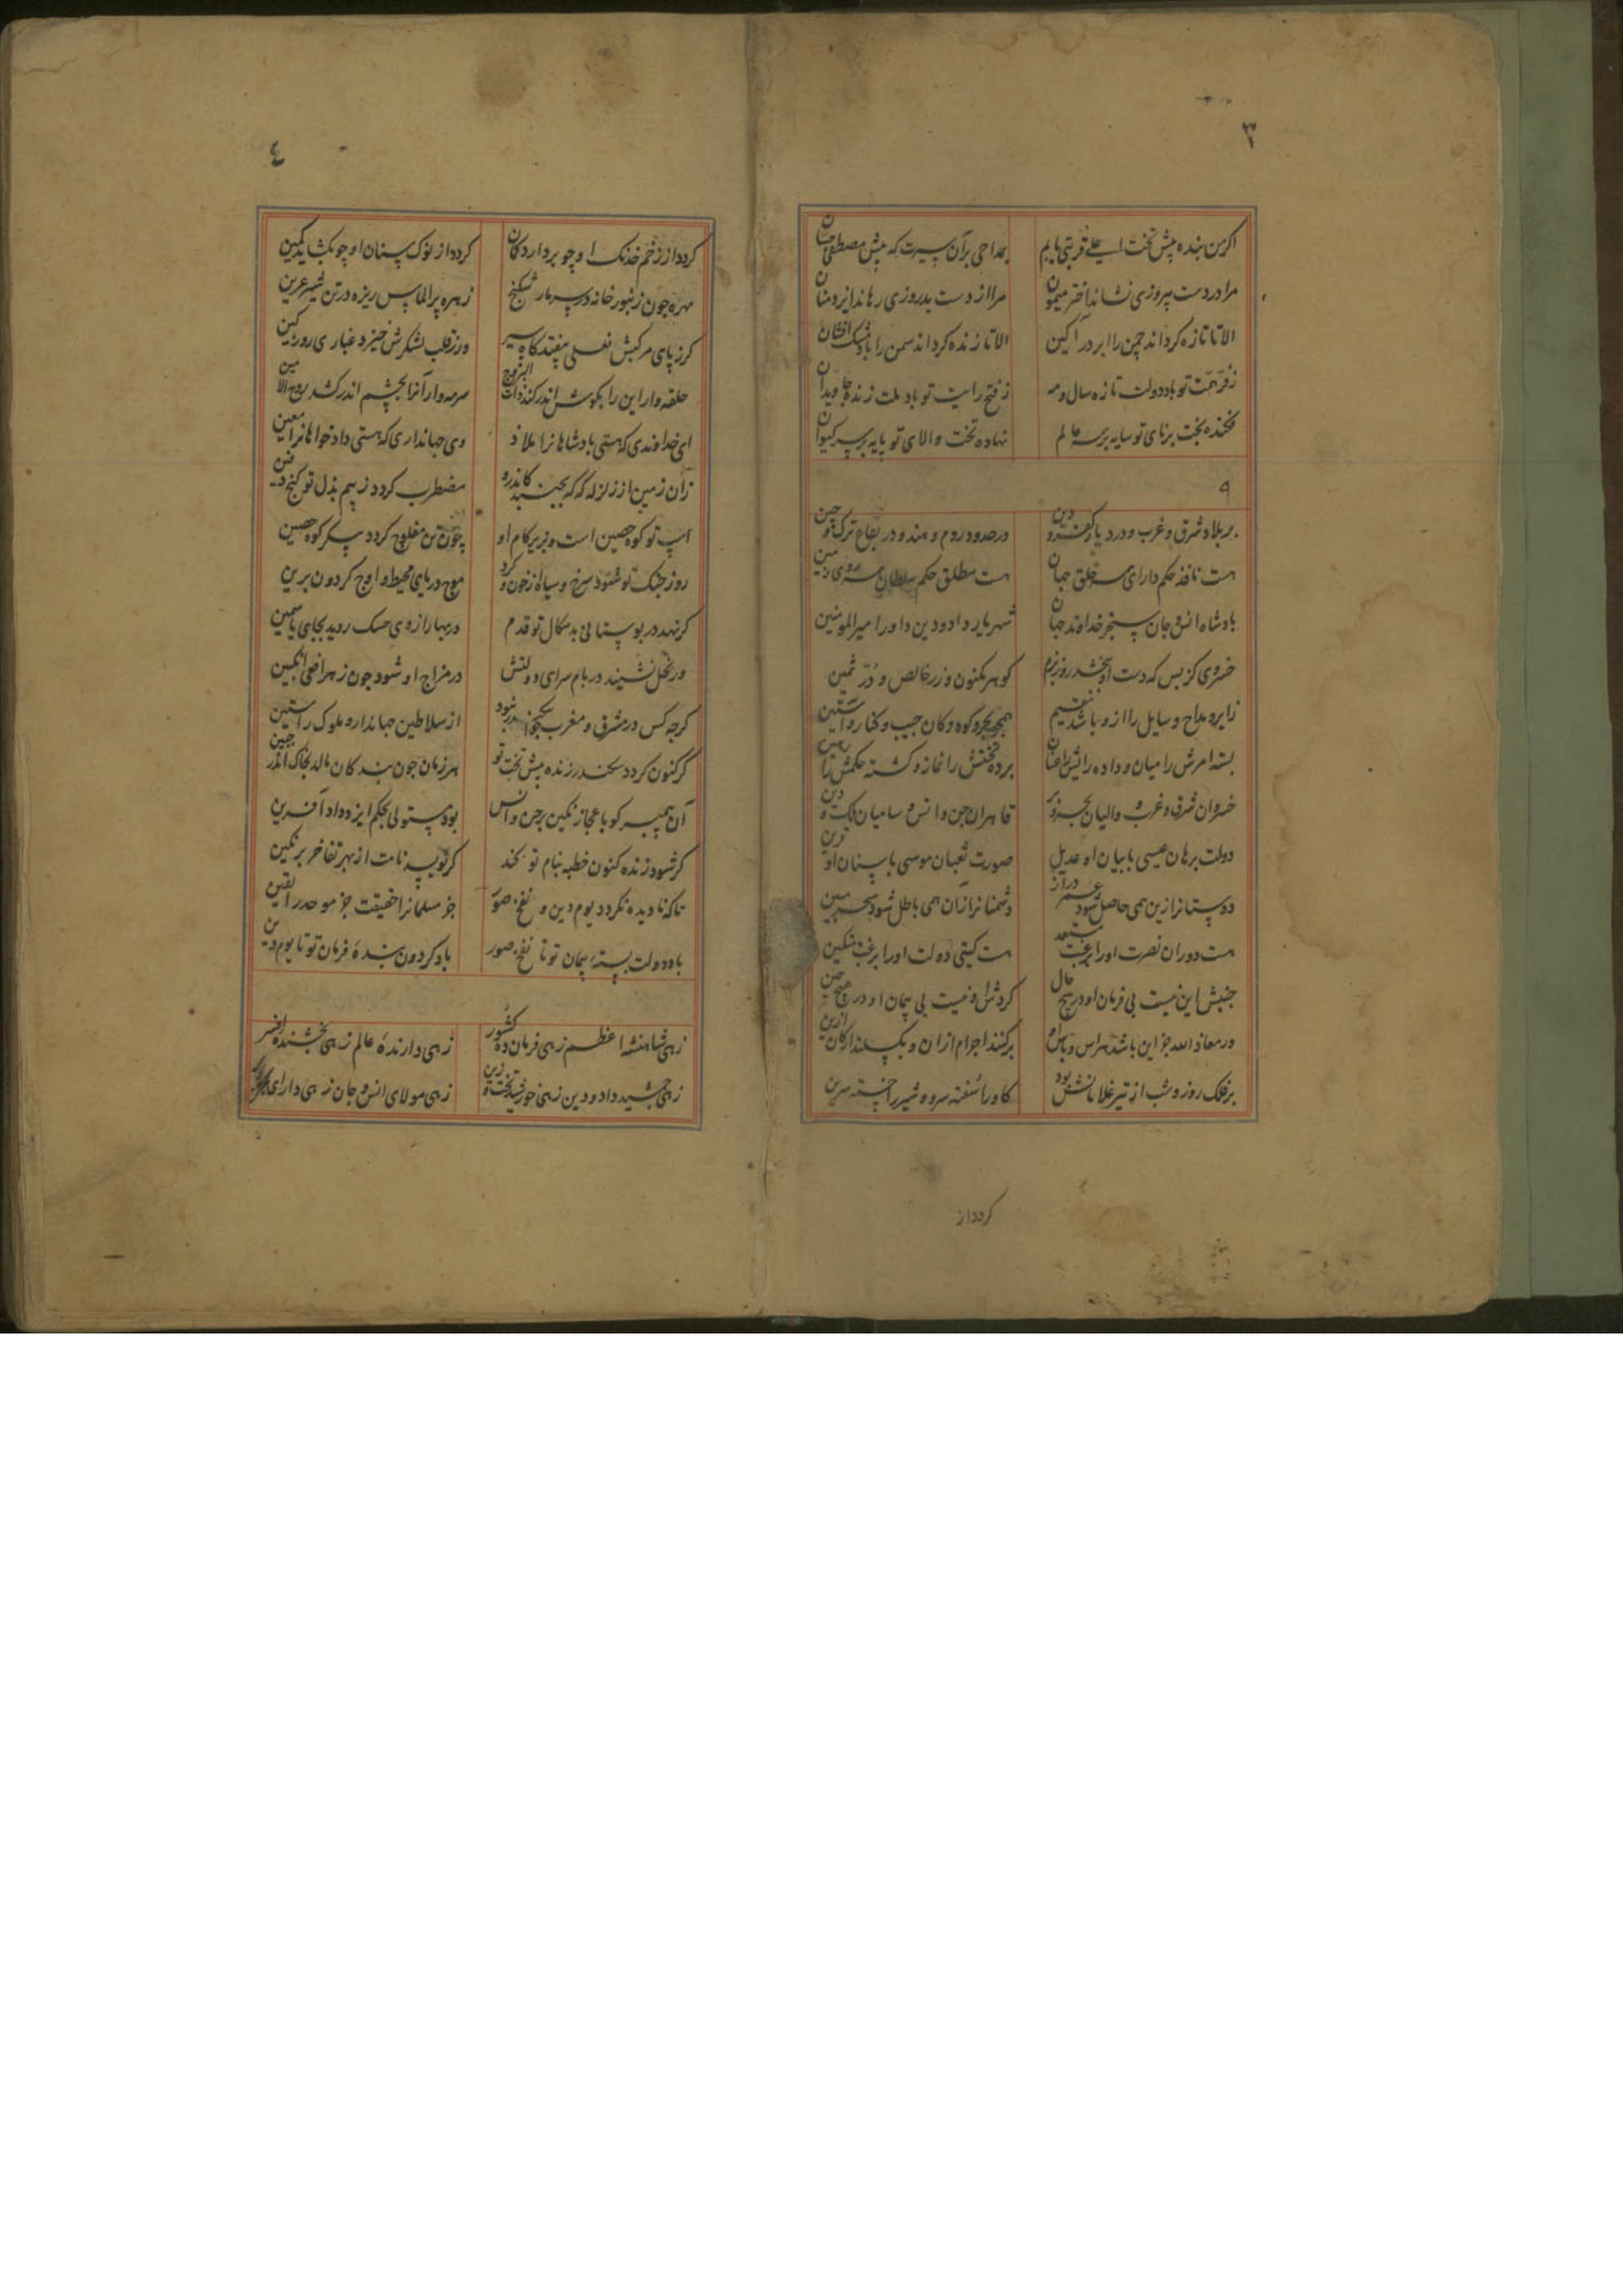 ۳
اکر من بنده پیش تخت اعلی قربتی یابم
بمداحی بر آن سیرت که پیش مصطفی حسان
مرا در دست پیروزی نشاند اختر میمون
مرا از دست بدروزی رهاند ایزد منان
الا تا تازه کرداند چمن را ابر در آکین
الا تا زنده کرداند سمن را باد مشک افشان
ز فر همت تو باد دولت تازه سال و مه
ز فتح رایت تو باد ملت زنده جاویدان
فکنده بخت برنای تو سایه بر همه عالم
نهاده تخت والای تو پایه بر سر کیوان
۹
بر بلاد شرق و غرب و در دیار کفر و دین
در حدود روم و هند و در بقاع ترک و چین
هست نافذ حکم دارای همه خلق جهان
هست مطلق حکم سلطان همه روی زمین
بادشاه انس و جان سنجر خداوند جهان
شهریار داد و دین داور امیر المومنین
خسروی کز بس که دست او بخشد روز بزم
کوهر مکنون و زر خالص و در ثمین
زایر و مداح و سایل را ازو باشد مقیم
همچو بحر و کوه و کان جیب و کنار و آستین
بسته امرش را میان و داده رایش را عنان
برده تختش را نماز و کشته حکمش را رهین
خسروان شرق و غرب و والیان بحر و بر
قاهران جن و انس و سامیان ملک و دین
دولت برهان عیسی با بیان او عدیل
صورت ثعبان موسی با سنان او قرین
دوستانرا زین همی حاصل شود عمر دراز
دشمنانرا زان همی باطل شود سحر مبین
هست دوران نصرت اورا برغبت مستعد
هست کیتی دولت اورا برغبت مستکین
جنبش این نیست بی فرمان او در هیچ حال
کردش او نیست بی پیمان او در هیچ حین
ور معاذ الله جز این باشد هراس و باس او
برکند اجرام ازان و بکسلد ارکان ازین
بر فلک روز و شب از تیر غلامانش بود
کاو را سفته سرو و شیر را خسته سرین
کردد از
۴
کردد از زخم خدنک او چو بردارد کمان
کردد از نوک سنان او چو بکشاید کمین
مهره چون زنبور خانه در سر مار شکنج
زهره پر الماس ریزه در تن شیر عرین
کر ز پای مرکبش نعلی بیفتد کاه سیر
ور ز قلب لشکرش خیزد غباری روز کین
حلقه وار این را بکوش اندر کند ذات البروج
سرمه وار آنرا بچشم اندر کشد روح الامین
ای خداوندی که هستی بادشاهانرا ملاذ
وی جهانداری که هستی دادخواهانرا معین
زان زمین از زلزله که که بجنبد کاندرو
مضطرب کردد ز بیم بذل تو کنج دفین
اسب تو کوه حصین است و بزیر کام او
چون تن مفلوج کردد پیکر کوه حصین
روز جنک تو شود سرخ و سیاه از خون و کرد
موج دریای محیط و اوج کردون برین
کر نهد در بوستانی بدسکال تو قدم
در بهار از وی خسک روید بجای یاسمین
ور نحل نشیند در بام سرای دولتش
در مزاج او شود چون زهر افعی انکبین
کرچه کس در مشرق و مغرب بجز سنجر نبود
از سلاطین جهاندار و ملوک راستین
کر کنون کردد سکندر زنده پیش تخت تو
هر زمان چون بندکان مالد بخاک اندر جبین
آن پیمبر کو باعجاز نکین بر جن و انس
بود مستولی بحکم ایزد داد آفرین
کر شود زنده کنون خطبه بنام تو کند
کر نویسد نامت از بهر تفاخر بر نکین
تا که نادیده نکردد یوم دین و نفخ صور
جز مسلمانرا حقیقت جز موحد را یقین
باد دولت بسته پیمان تو تا نفخ صور
باد کردون بنده فرمان تو تا یوم دین
زهی شاهنشه اعظم زهی فرمان ده کشور
زهی دارنده عالم زهی بخشنده افسر
زهی جمشید داد و دین زهی خورشید تخت و زین
زهی مولای انس و جان زهی دارای